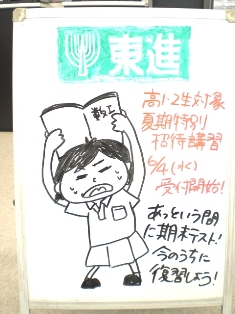 東進
高1・2生対象
夏期特別
招待講習
6/4(水)
受付開始!
数工
あっという間
に期末テスト!
今のうちに
復習しよう!